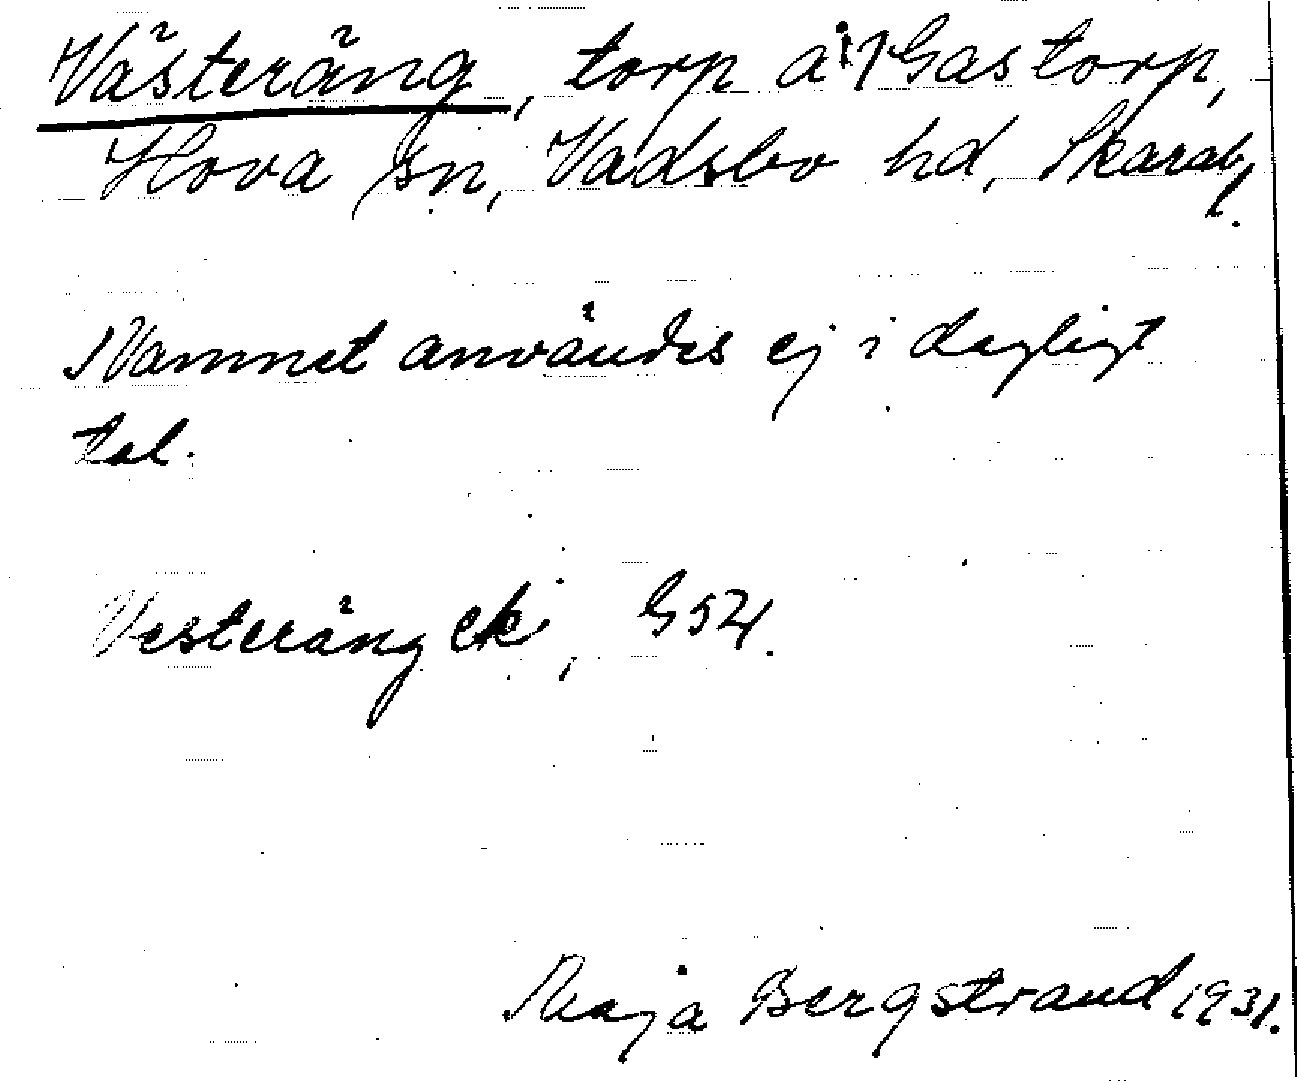 Västeräng, torp å 1/1 Gastorp,
Hova sn, Vadsbo hd, Skarab.
l.
Namnet användes ej i dagligt
tal.
Vesteräng ek, G52
Maja Bergstrand 1931.